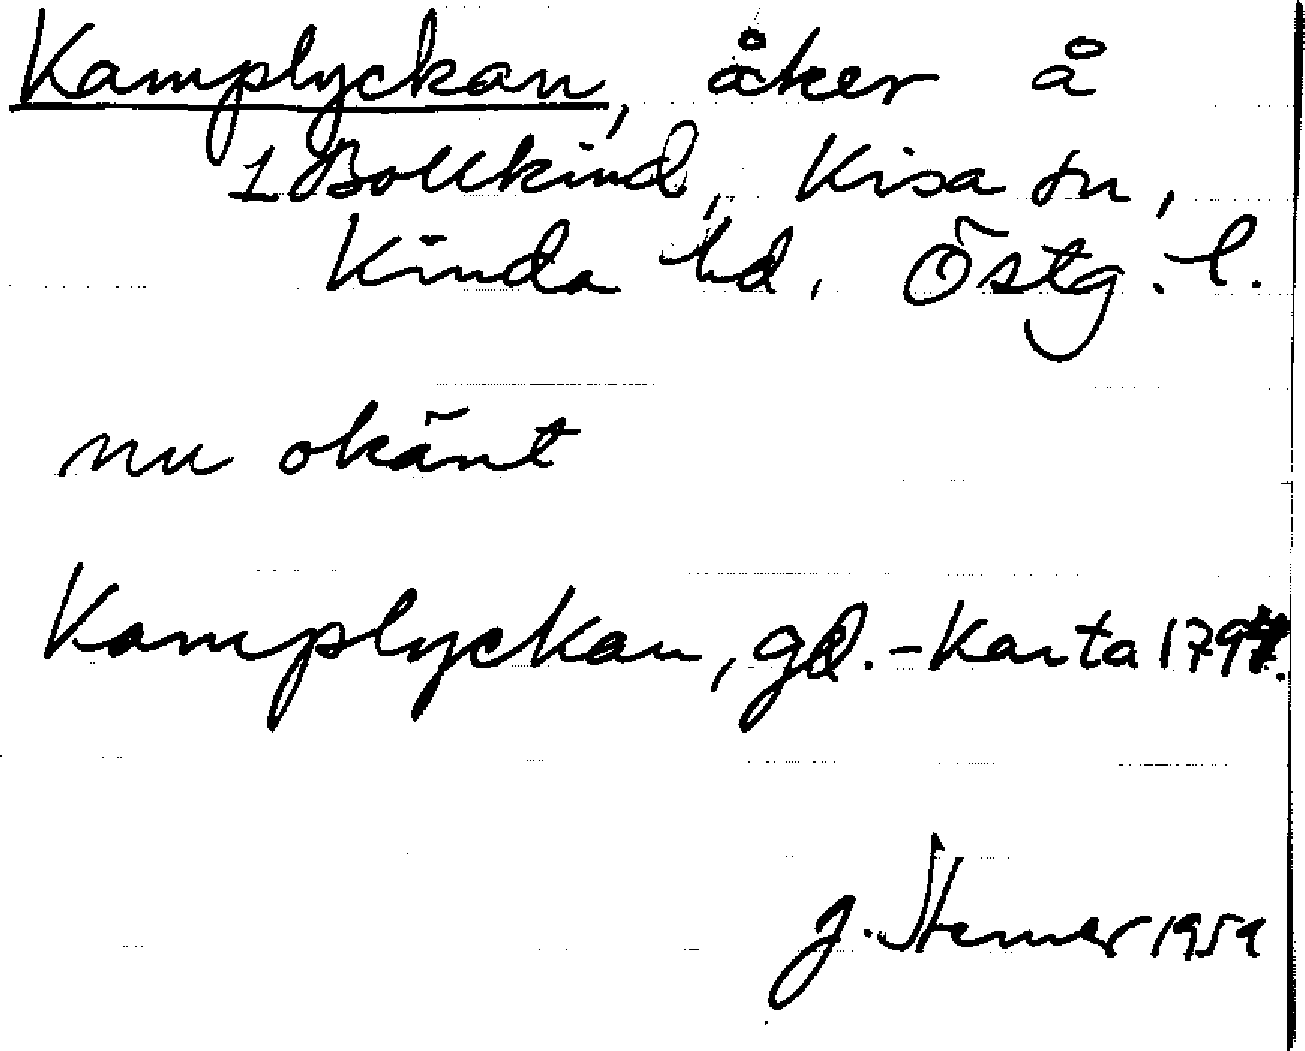 Kamplyckan, åker å
1 Bollkind, Kisa sn,
Kinda hd, Östg. l.
nu okänt
Kamplyckan, gd. - Karta
J. Stenner 1959